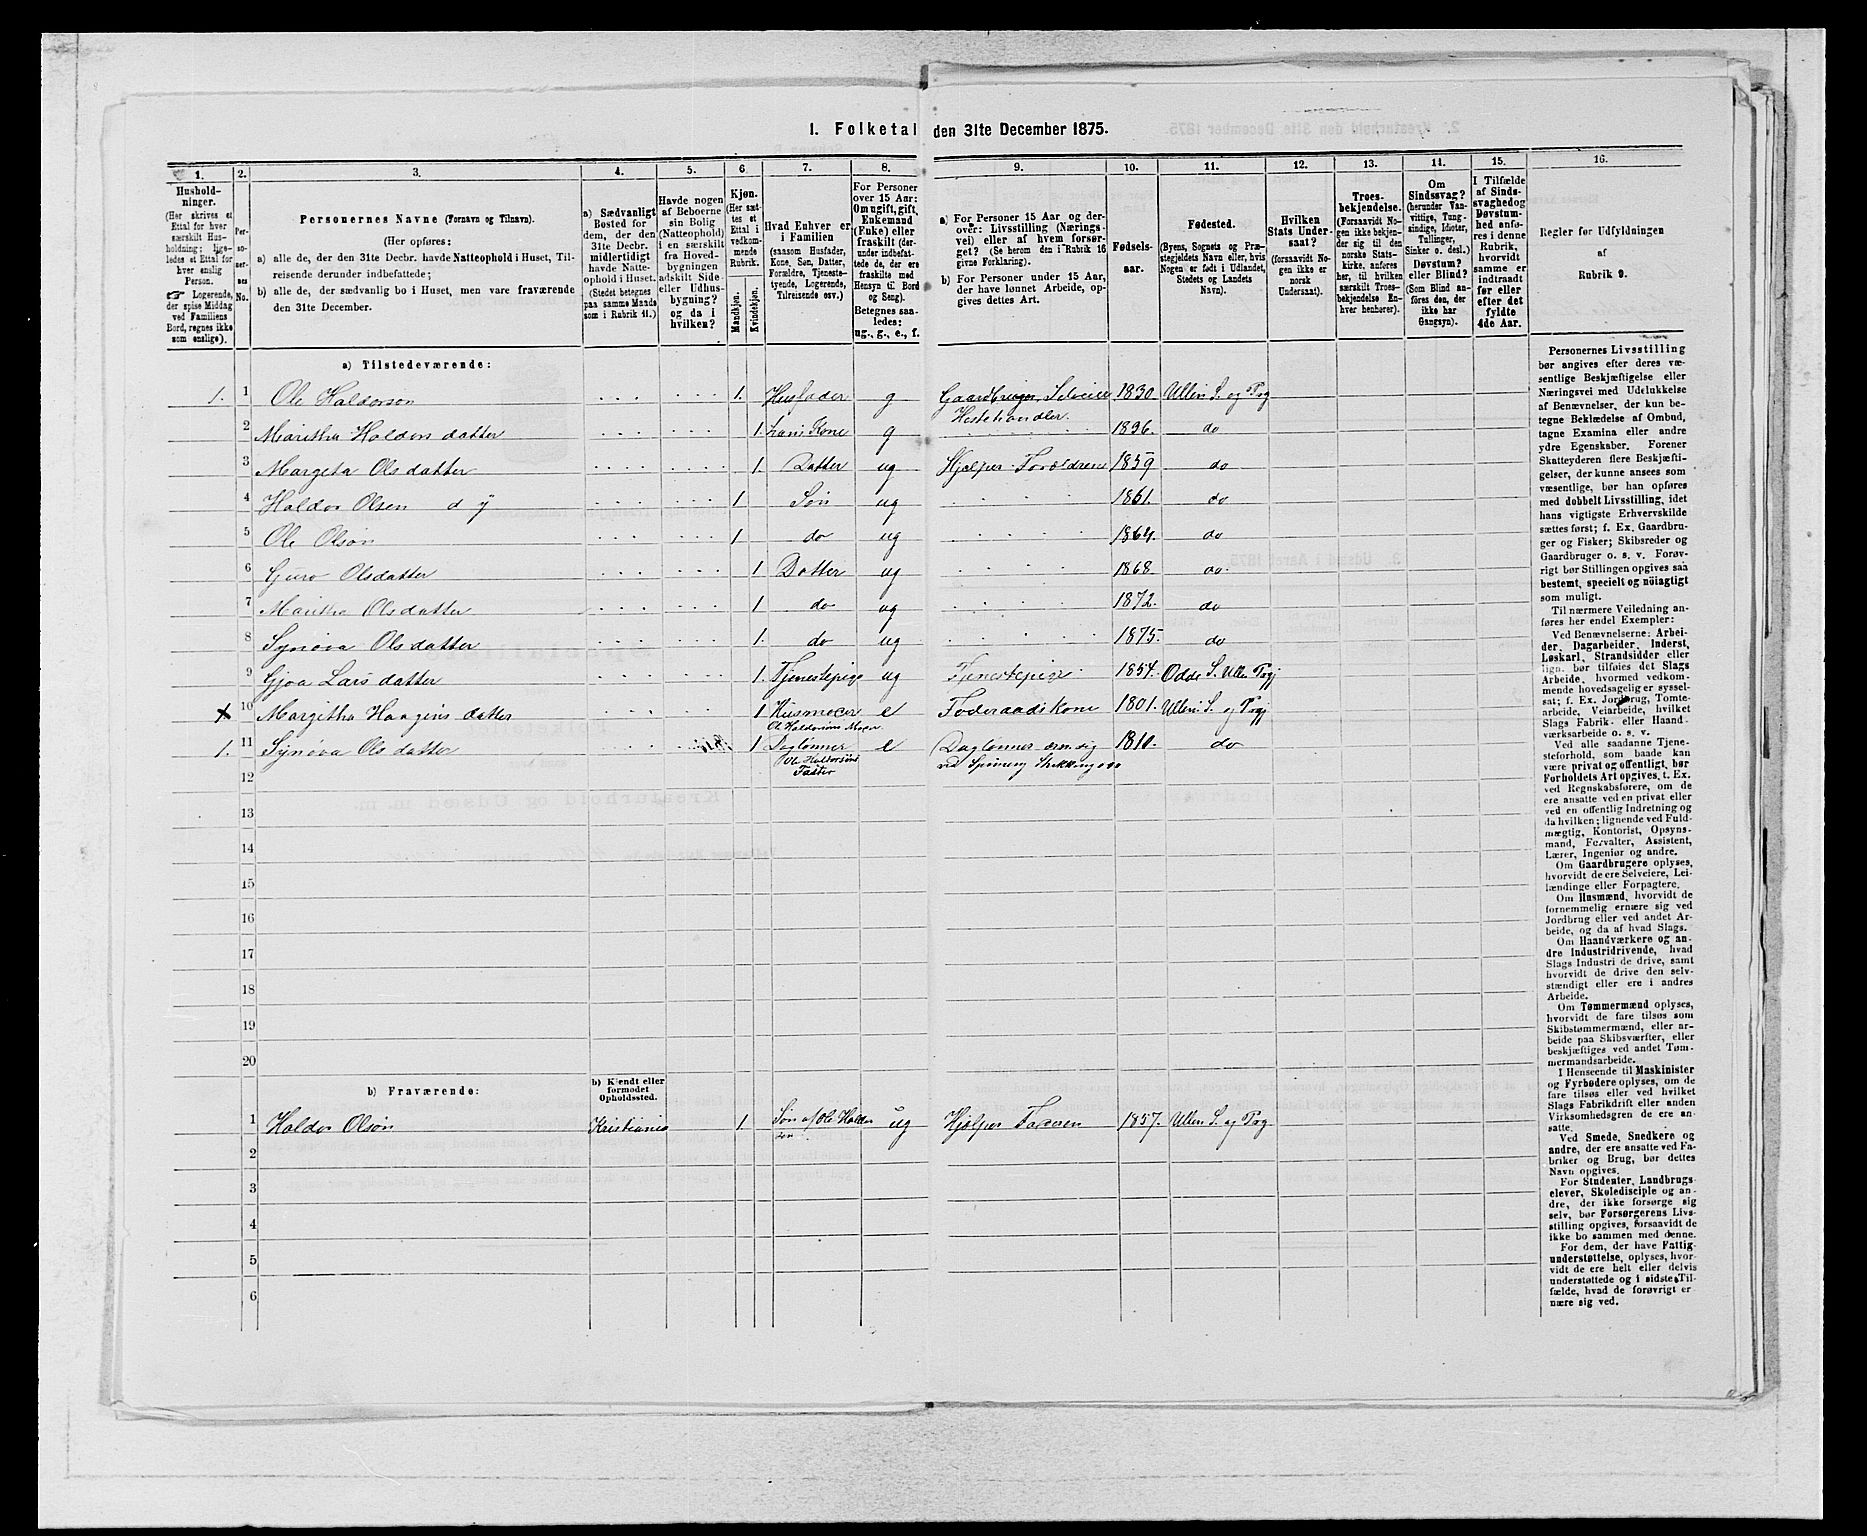 1. Folketal den 31te December 1875.
1. 2. 3. 4. 5. 6. 7. 8. 9. 10. 11. 12. 13. 14. 15. 16.
Hushold-
ninger.
(Her skrives et
Ettal for hver
særskilt Hus-
holdning; lige-
ledes et Ettal for
hver enslig
Person.
☞ Logerende,
der spise Middag
ved Familiens
Bord, regnes ikke
som enslige).
Per-
so-
ner-
nes
No.
Personernes Navne (Fornavn og Tilnavn).
(Her opføres:
a) alle de, der den 31te Decbr. havde Natteophold i Huset, Til-
reisende derunder indbefattede;
b) alle de, der sædvanlig bo i Huset, men vare fraværende
den 31te December.
a) Sædvanligt
Bosted for
dem, der den
31te Decbr.
midlertidigt
havde Natte-
ophold i Huset.
(Stedet betegnes
paa samme Maade
som i Rubrik 11.)
Havde nogen
af Beboerne
sin Bolig
(Natteophold)
i en særskilt
fra Hoved-
bygningen
adskilt Side-
eller Udhus-
bygning?
og da i
hvilken?
Kjøn.
(Her sæt-
tes et
Ettal i
vedkom-
mende
Rubrik.
Mandkjøn.
Kvindekjøn.
Hvad Enhver er
i Familien
(saasom Husfader,
Kone, Søn, Datter,
Forældre, Tjeneste-
tyende, Logerende,
Tilreisende osv.)
For Personer
over 15 Aar:
Om ugift, gift,
Enkemand
(Enke) eller
fraskilt (der-
under indbefat-
tede de, der ere
fraskilte med
Hensyn til Bord
og Seng).
Betegnes saa-
ledes:
ug., g., e., f.
a) For Personer 15 Aar og der-
over: Livsstilling (Nærings-
vei) eller af hvem forsør-
get? (Se herom den i Rubrik 16
givne Forklaring).
b) For Personer under 15 Aar,
der have lønnet Arbeide, op-
gives dettes Art.
Fødsels-
aar.
Fødested.
(Byens, Sognets og Præ-
stegjeldets Navn eller, hvis
Nogen er født i Udlandet,
Stedets og Landets
Navn).
Hvilken
Stats Under-
saat?
(forsaavidt No-
gen ikke er
norsk
Undersaat).
Troes-
bekjendelse.
(Forsaavidt No-
gen ikke bekjen-
der sig til den
norske Stats-
kirke, anføres
her, til hvilken
særskilt Troes-
bekjendelse En-
hver henhører).
Om
Sindssvag?
(herunder Van-
vittige, Tung-
sindige, Idioter,
Tullinger,
Sinker o. desl.)
Døvstum?
eller Blind?
(Som Blind an-
føres den, der
ikke har
Gangsyn).
I Tilfælde
af Sinds-
svaghed og
Døvstum-
hed anfø-
res i denne
Rubrik,
hvorvidt
samme er
indtraadt
før eller
efter det
fyldte
4de Aar.
Regler før Udfyldningen
af
Rubrik 9.
a) Tilstedeværende:
1. 1 Ole Haldorson 1. Husfader g Gaardbruger, Selveier 1830 Ullens S. og Prg
Hestehandler.
2 Maritha Haldors datter 1. hans Kone g 1836. do
3 Margeta Olsdatter 1. Datter ug Hjælper Forældrene 1859 do
4 Haldor Olsen d y 1 Søn ug 1861. do
5 Ole Olson 1 do ug 1864. do
6 Guro Olsdatter 1 Datter ug 1868 do
7 Maritha Olsdatter 1 do ug 1872. do
8 Synøva Olsdatter 1. do ug 1875. do
9 Gjoa Lars datter 1. Tjenestepige ug Tjenestepige 1854. Odde S. Ullens Prgj
x 10 Margitha Haagens datter 1 Husmoer e Føderaadskone 1801. Ullens S. og Prgj
Ole Haldorsons Moer
1. 11 Synøva Olsdatter 1 Daglønner e Daglønner ernær sig 1810. do
Ole Haldorsøns ved Spinning
Faster
12
13
14
15
16
17
18
19
20
b) Fraværende:
b) Kjendt eller
formodet
Opholdssted.
1 Haldor Olson Kristiania 1 Søn af Ole Haldor ug Hjælper Faderen 1857. Ullens S. og Prg
son
2
3
4
5
6
Personernes Livsstilling
bør angives efter deres væ-
sentlige Beskjæftigelse eller
Næringsvei med Udelukkelse
af Benævnelser, der kun be-
tegne Beklædelse af Ombud,
tagne Examina eller andre
ydre Egenskaber. Forener
Skatteyderen flere Beskjæfti-
gelser, der kunne ansees som
væsentlige, bør han opføres
med dobbelt Livsstilling, idet
hans vigtigste Erhvervskilde
sættes først; f. Ex. Gaardbru-
ger og Fisker; Skibsreder og
Gaardbruger o. s. v. Forøv-
rigt bør Stillingen opgives saa
bestemt, specielt og nöiagtigt
som muligt.
Til nærmere Veiledning an-
føres her endel Exempler:
Ved Benævnelserne: Arbei-
der, Dagarbeider, Inderst,
Løskarl, Strandsidder eller
lign. bør tilføies det Slags
Arbeide, hvormed vedkom-
mende hovedsagelig er syssel-
sat; f. Ex. Jordbrug, Tomte-
arbeide, Veiarbeide, hvilket
Slags Fabrik- eller Haand-
værksarbeide o. s. v.
Ved alle saadanne Tjene-
steforhold, som baade kan
være privat og offentligt, bør
Forholdets Art opgives, t. Ex.
ved Regnskabsførere, om de
ere ansatte ved en privat eller
ved en offentlig Indretning og
da hvilken; lignende ved Fuld-
mægtig, Kontorist, Opsyns-
mand, Forvalter, Assistent,
Lærer, Ingeniør og andre.
Om Gaardbrugere oplyses,
hvorvidt de ere Selveiere, Lei-
lændinge eller Forpagtere.
Om Husmænd, hvorvidt de
fornemmelig ernære sig ved
Jordbrug eller ved andet Ar-
beide, og da af hvad Slags.
Om Haandværkere og an-
dre Industridrivende, hvad
Slags Industri de drive, samt
hvorvidt de drive den selv-
stændigt eller ere i andres
Arbeide.
Om Tømmermænd oplyses,
hvorvidt de fare tilsøs som
Skibstømmermænd, eller ar-
beide paa Skibsværfter, eller
beskjæftiges ved andet Tøm-
mermandsarbeide.
I Henseende til Maskinister
og Fyrbødere oplyses, om de
fare tilsøs eller ved hvilket
Slags Fabrikdrift eller anden
Virksomhedsgren de ere an-
satte.
Ved Smede, Snedkere og
andre, der ere ansatte ved Fa-
briker og Brug, bør dettes
Navn opgives.
For Studenter, Landbrugs-
elever, Skoledisciple og an-
dre, der ikke forsørge sig
selv, bør Forsørgerens Livs-
stilling opgives, forsaavidt de
ikke bo sammen med denne.
For dem, der have Fattig-
understøttelse, oplyses, hvor-
vidt de ere helt eller delvis
understøttede og i sidste Til-
fælde, hvad de forøvrigt er-
nære sig ved.